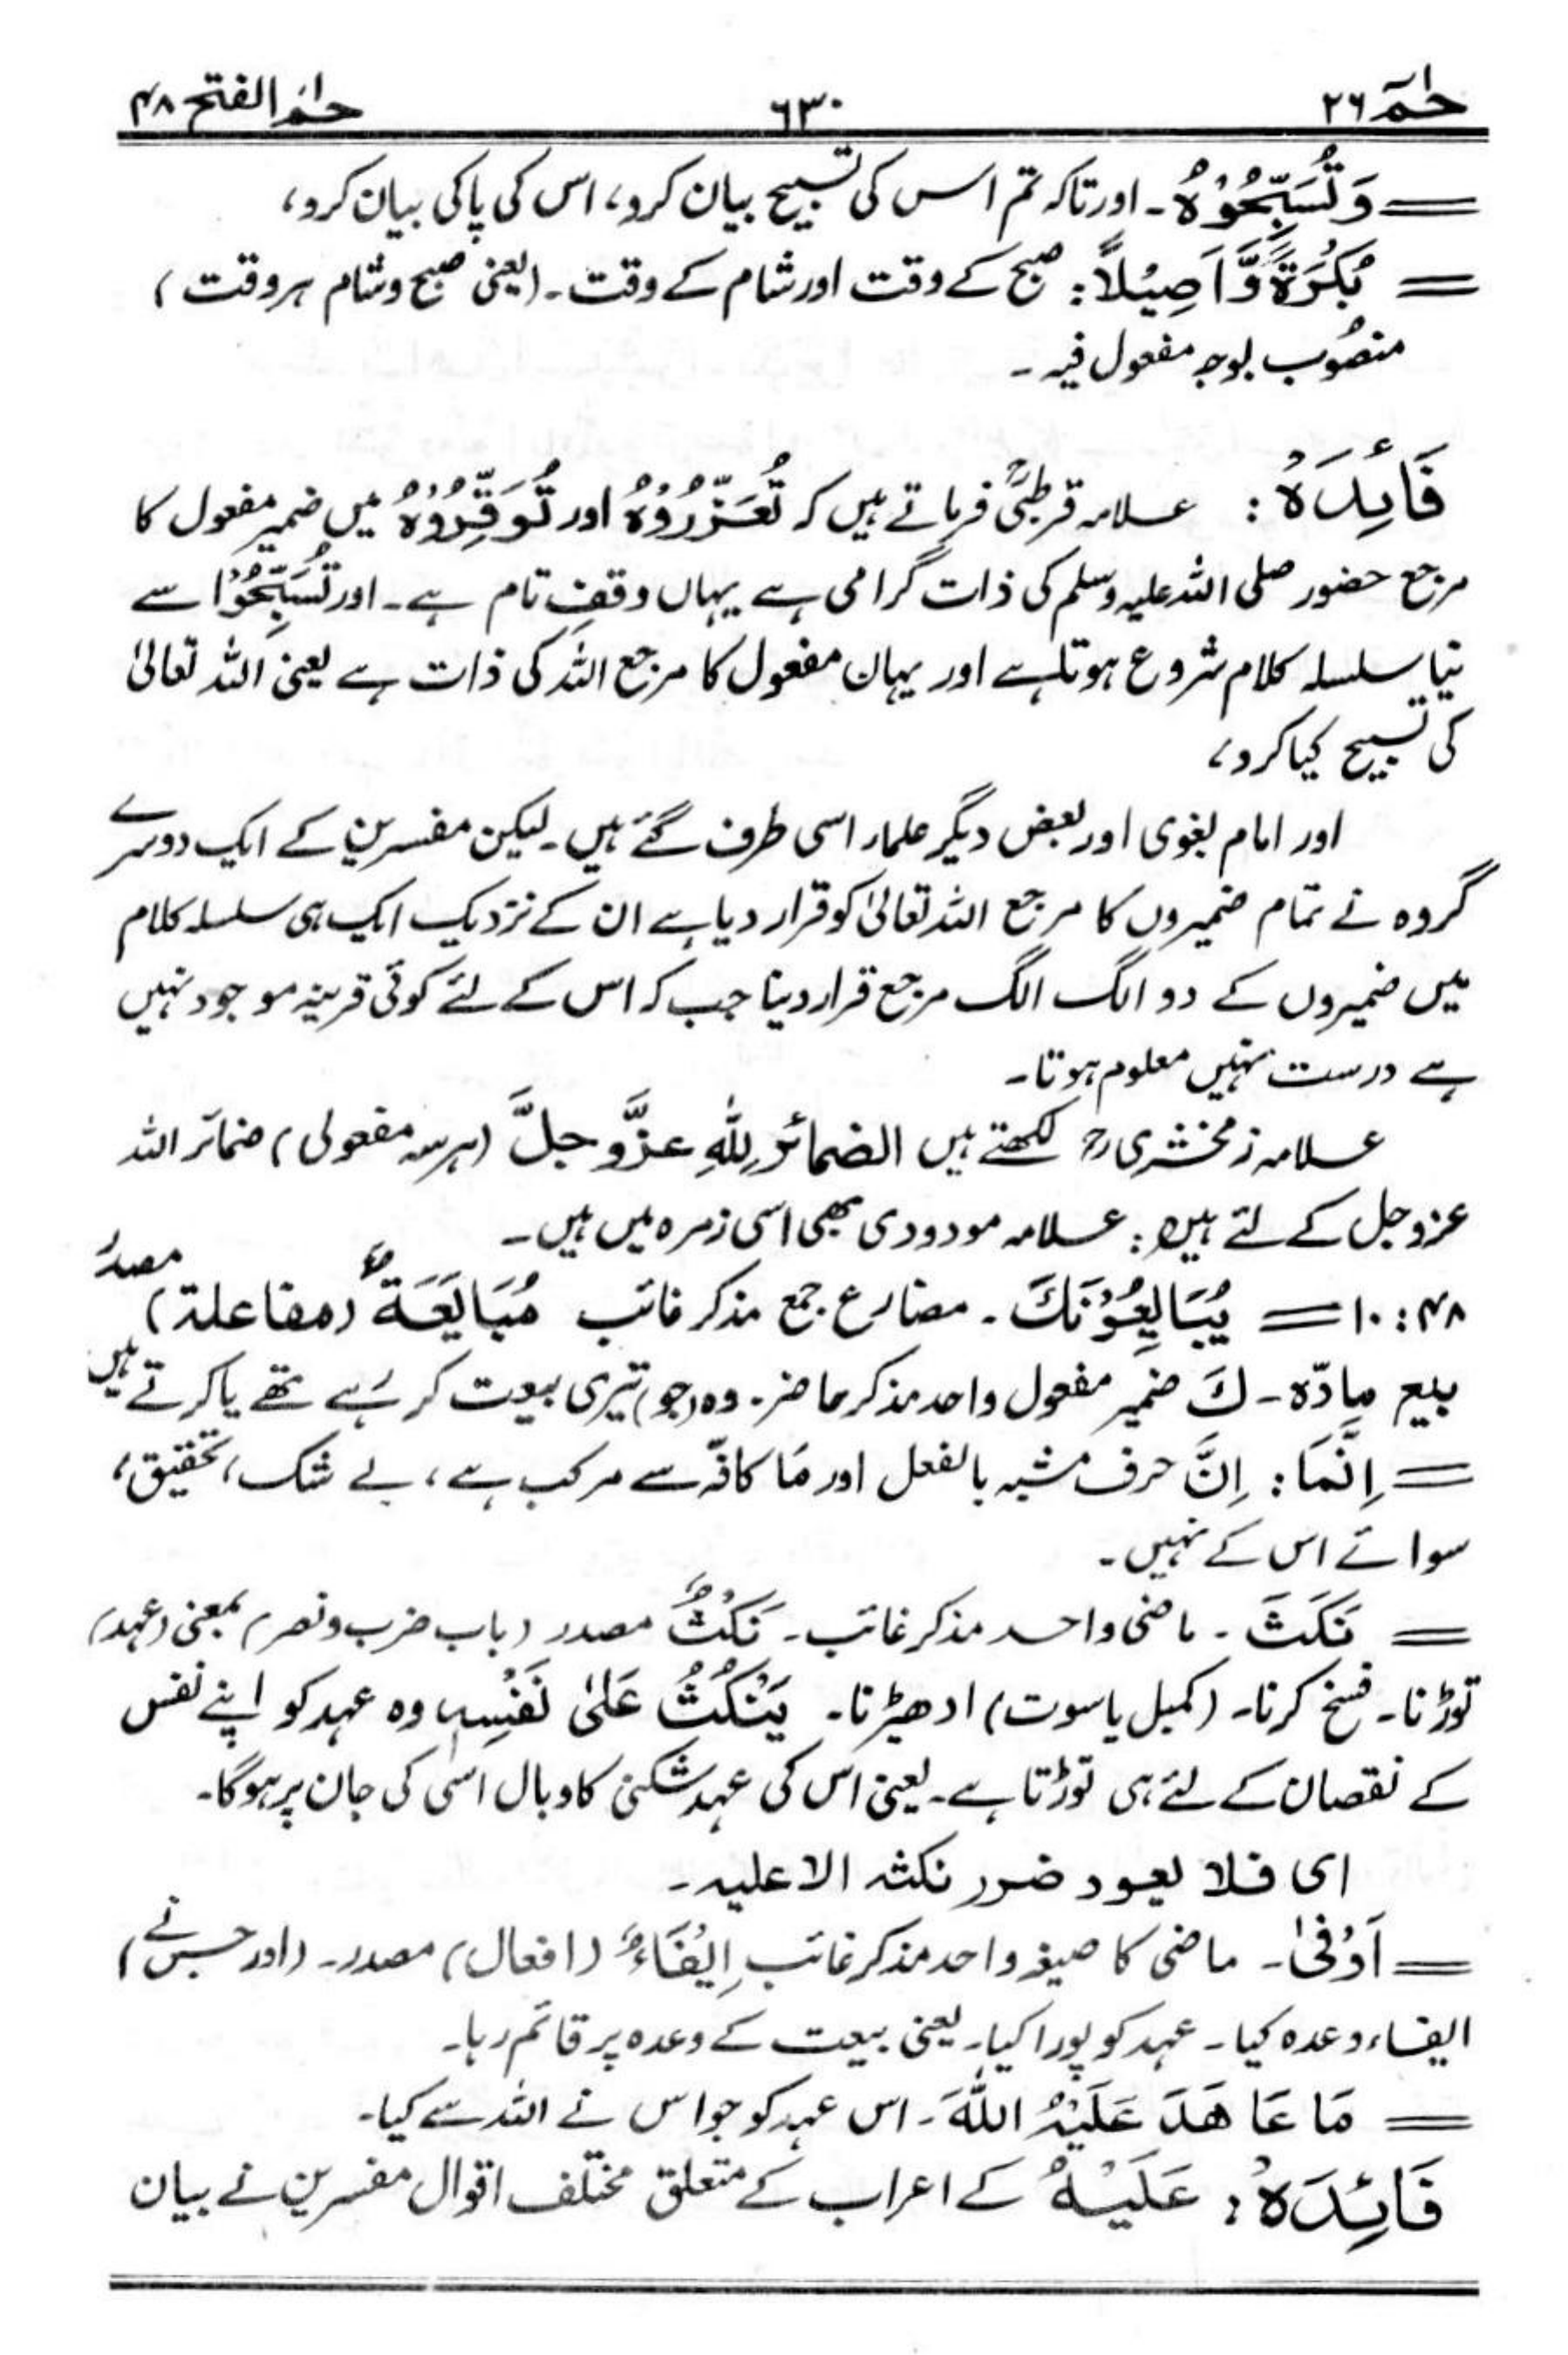 حٰمٓ ٢٦ ٦٣٠ حٰمٓ الفتح ٤٨
= وَتُسَبِّحُوْهُ۔ اور تاکہ تم اس کی تسبیح بیان کرو، اس کی پاکی بیان کرو،
= بُكْرَةً وَّاَصِيْلاً: صبح کے وقت اور شام کے وقت۔ (یعنی صبح و شام ہر وقت)
منصُوب بوجہ مفعول فیہ۔
فَائِدَہْ: علامہ قرطبیؒ فرماتے ہیں کہ تُعَزِّرُوْهُ اور تُوَقِّرُوْهُ میں ضمیر مفعول کا
مرجع حضور صلی اللہ علیہ وسلم کی ذات گرامی ہے یہاں وقفِ تام ہے۔ اور تُسَبِّحُوْا سے
نیا سلسلہ کلام شروع ہوتا ہے اور یہاں مفعول کا مرجع اللہ کی ذات ہے یعنی اللہ تعالیٰ
کی تسبیح کیا کرو،
اور امام بغوی اور بعض دیگر علماء اسی طرف گئے ہیں۔ لیکن مفسرین کے ایک دوسرے
گروہ نے تمام ضمیروں کا مرجع اللہ تعالیٰ کو قرار دیا ہے ان کے نزدیک ایک ہی سلسلہ کلام
میں ضمیروں کے دو الگ الگ مرجع قرار دینا جب کہ اس کے لئے کوئی قرینہ موجود نہیں
ہے درست نہیں معلوم ہوتا۔
علامہ زمخشری رح لکھتے ہیں الضمائر لِلّٰهِ عزَّ وجلَّ (ہر سہ مفعولی) ضمائر اللہ
عزوجل کے لئے ہیں: علامہ مودودی بھی اسی زمرہ میں ہیں۔
٤٨: ١٠ = يُبَايِعُوْنَكَ۔ مضارع جمع مذکر غائب مُبَايَعَةٌ (مفاعلة) مصدر
بیع مادّہ۔ كَ ضمیر مفعول واحد مذکر حاضر۔ وہ (جو) تیری بیعت کر رہے تھے یا کرتے ہیں
= اِنَّمَا: اِنَّ حرف مشبہ بالفعل اور مَا کافّہ سے مرکب ہے، بے شک، تحقیق،
سوائے اس کے نہیں۔
= نَكَثَ۔ ماضی واحد مذکر غائب۔ نَكْثٌ مصدر (باب ضرب و نصر) بمعنی (عہد)
توڑنا۔ فسخ کرنا۔ (کمبل یا سوت) ادھیڑنا۔ يَنْكُثُ عَلىٰ نَفْسِهٖ وہ عہد کو اپنے نفس
کے نقصان کے لئے ہی توڑتا ہے۔ یعنی اس کی عہد شکنی کا وبال اسی کی جان پر ہوگا۔
ای فلا يعود ضرر نكثه الا عليه۔
= اَوْفىٰ۔ ماضی کا صیغہ واحد مذکر غائب اِيْفَاءٌ (افعال) مصدر۔ (اور جس نے)
ایفاء وعدہ کیا۔ عہد کو پورا کیا۔ یعنی بیعت کے وعدہ پر قائم رہا۔
= مَا عَاهَدَ عَلَيْهُ اللّٰهَ۔ اس عہد کو جو اس نے اللہ سے کیا۔
فَائِدَہْ: عَلَيْهُ کے اعراب کے متعلق مختلف اقوال مفسرین نے بیان